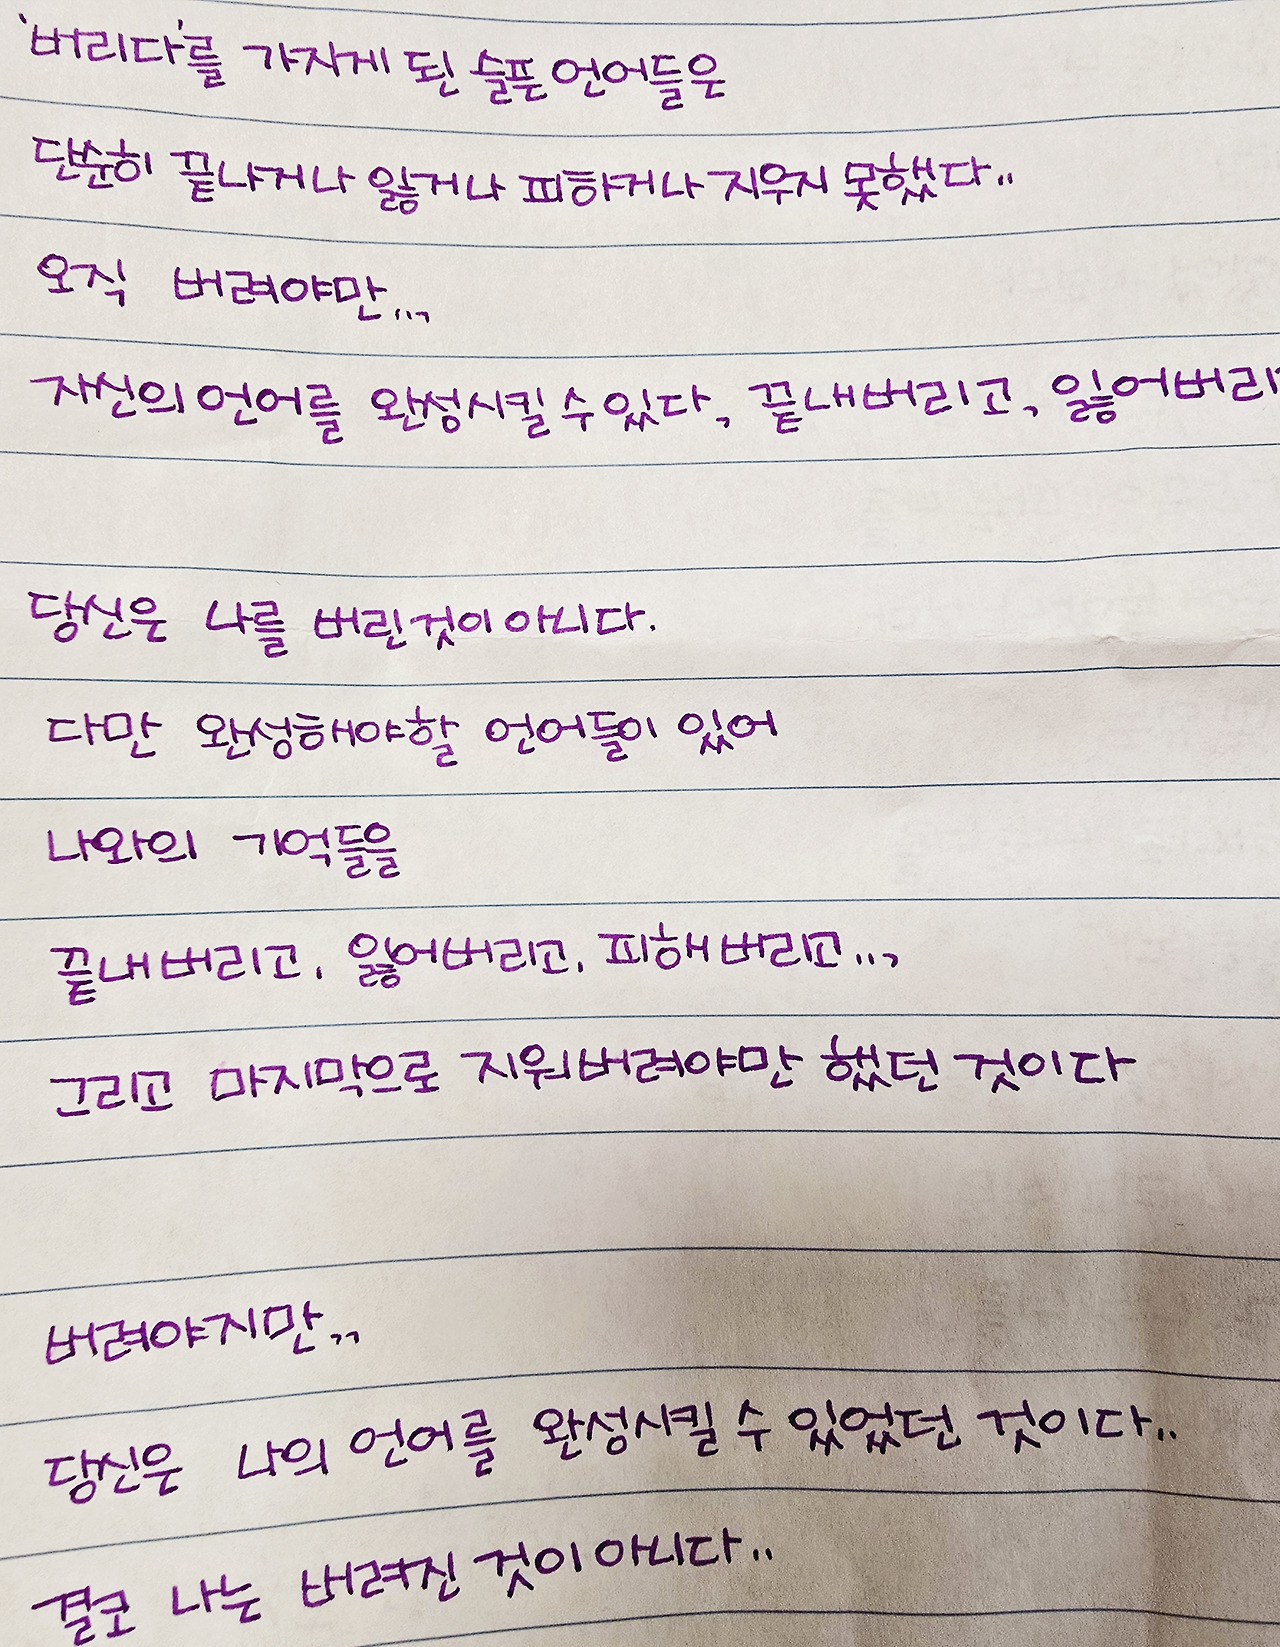 '버리다'를 가지게 된 슬픈 언어들은
단순히 끝나거나 잃거나 피하거나 지우지 못했다..
오직 버려야만...,
자신의 언어를 완성시킬 수 있다, 끝내버리고, 잃어버리
당신은 나를 버린것이 아니다.
다만 완성해야할 언어들이 있어
나와의 기억들을
끝내버리고, 잃어버리고, 피해버리고..,
그리고 마지막으로 지워버려야만 했던 것이다
버려야지만,,
당신은 나의 언어를 완성시킬 수 있었던 것이다..
결코 나는 버려진 것이 아니다..